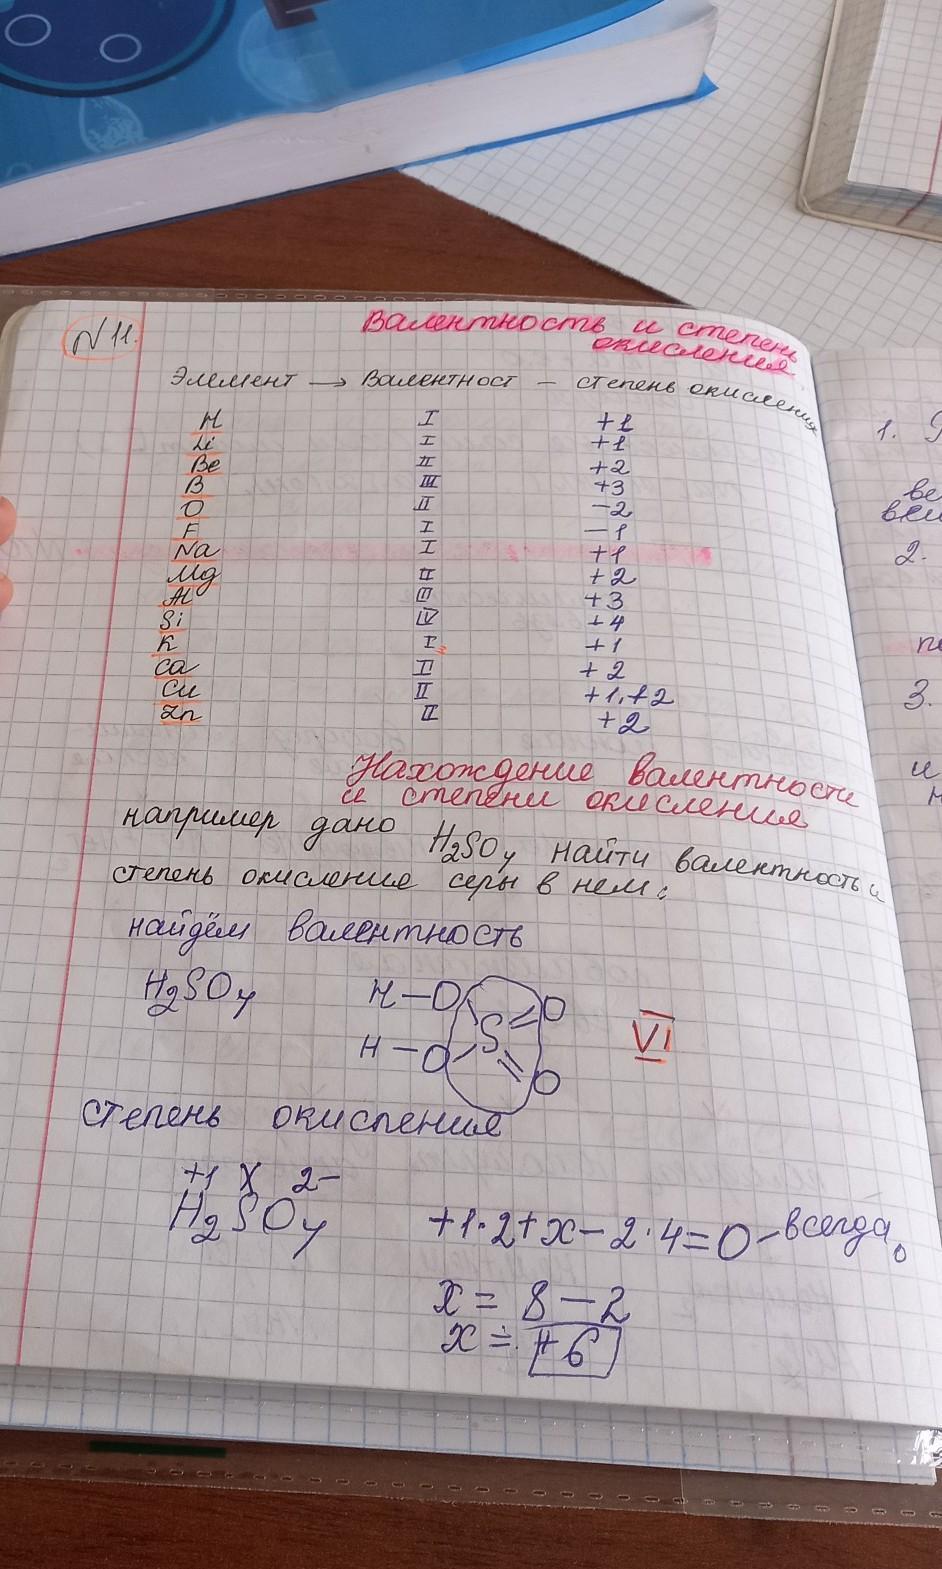 N 11.
Валентность и степень
окисления
Элемент → Валентност – степень окисления
H I +1
Li I +1
Be II +2
B III +3
O II −2
F I −1
Na I +1
Mg II +2
Al III +3
Si IV +4
K I +1
Ca II +2
Cu II +1,+2
Zn II +2
Нахождение валентности
и степени окисления
например дано H₂SO₄ найти валентность и
степень окисление серы в нем:
найдём валентность
H₂SO₄ H–O O
S VI
H–O O
степень окисления
+1 X 2−
H₂SO₄ +1·2+x−2·4=0 – всегда
x = 8 − 2
x = +6
1.
2.
3.